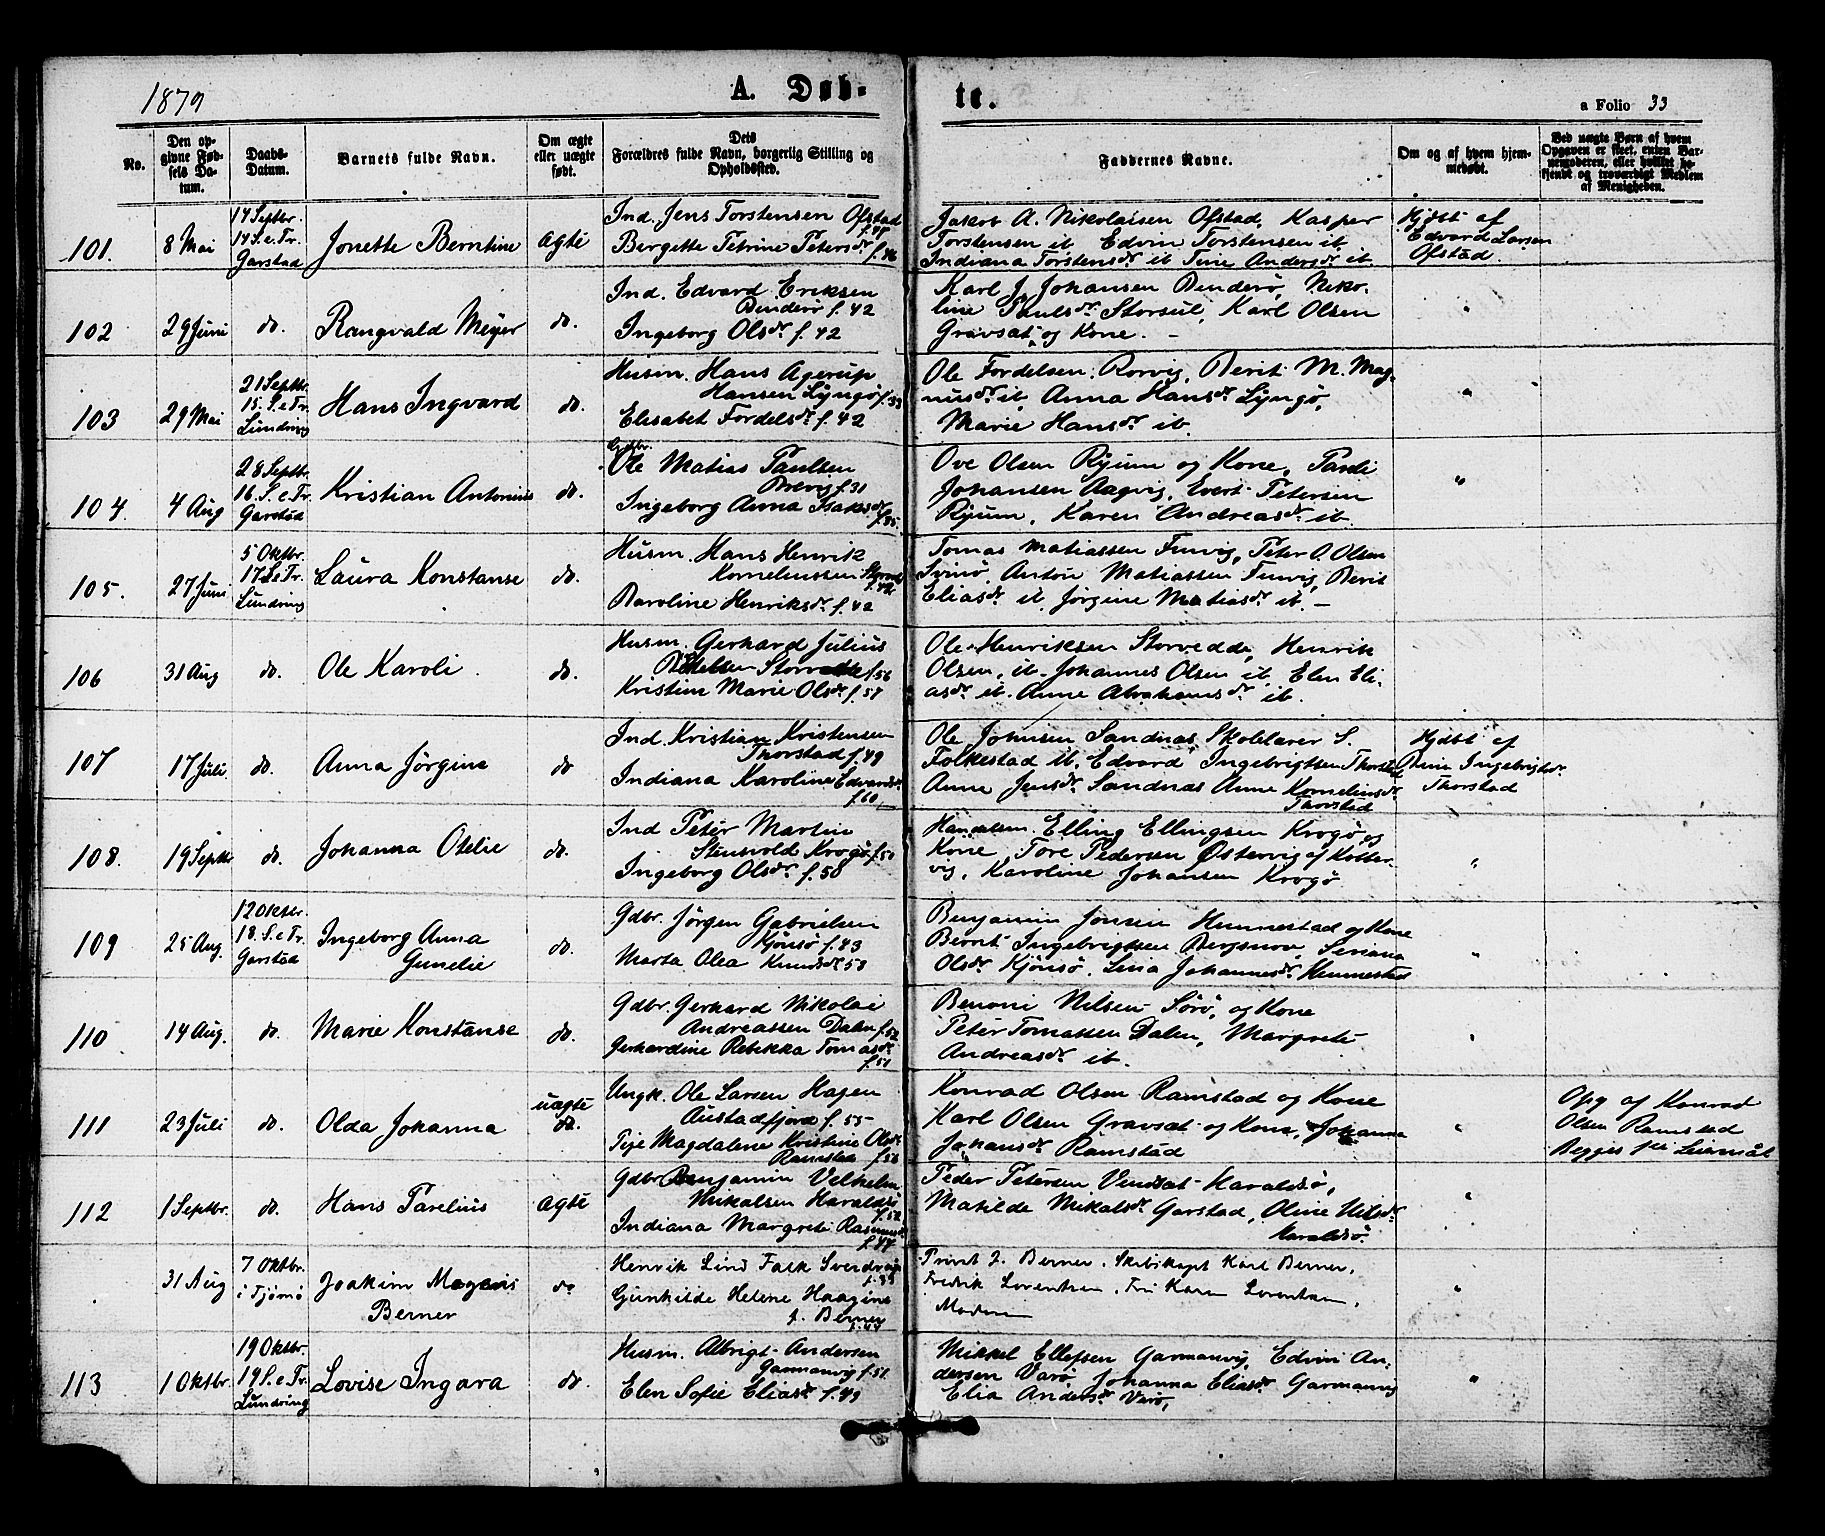 1879
A. Døb-
te.
a Folio 33
No.
Den op-
givne Fød-
sels Da-
tum.
Daabs-
Datum.
Barnets fulde Navn.
Om ægte
eller uægte
født.
Dets
Forældres fulde Navn, borgerlig Stilling og
Opholdssted.
Faddernes Navne.
Om og af hvem hjem-
medøbt.
Ved uægte Børn af hvem
Opgaven er skeet, enten Bar-
nemoderen, eller hvilket be-
kjendt og troværdigt Medlem
af Menigheden.
101.
8 Mai
14 Septbr.
14 S. e. Tr.
Garstad
Jonette Berntine
Ægte
Ind. Jens Torstensen Ofstad
f. 48
Bergette Petrine Petersdr. f. 46
Jakob A. Nikolaisen Ofstad, Kasper
Torstensen ib. Edvin Torstensen ib.
Indiana Torstensdr. ib. Tine Andersdr. ib.
Hjdbt af
Edvard Larsen
Ofstad.
102
29 Juni
do.
Rangvald Meyer
do.
Ind. Edvard Eriksen
Benderø f. 42
Ingeborg Olsdr. f. 42
Karl J. Johansen Benderø, Niko-
line Paulsdr. Storsul, Karl Olsen
Gravsat og Kone. –
"
103
29 Mai
21 Septbr.
15. S. e Tr.
Lundring
Hans Ingvard
do.
Husm. Hans Agerup
Hansen Lyngø f. 33
Elisabet Fordelsdr. f. 42
Ole Fordelsen Rørvig, Berit M. Mag-
nusdr. ib. Anna Hansdr. Lyngø,
Marie Hansdr. ib.
"
104.
4 Aug
28 Septbr.
16. S. e Tr.
Garstad
Kristian Antonius
do.
Gdbr.
Ole Matias Paulsen
Brevig f. 31
Ingeborg Anna Isaksdr.
f. 35.
Ove Olsen Ryum og Kone, Paul
Johansen Aagvig, Evert Petersen
Ryum, Karen Andreasdr. ib.
"
105.
27 Juni
5 Oktbr.
17 S. e Tr.
Lundring
Laura Konstanse
do.
Husm. Hans Henrik
Korneliussen
f. 42
Baroline Henriksdr. f. 42
Tomas Matiassen Furvig, Peter O. Olsen
Svinø, Anton Matiassen Furvig, Berit
Eliasdr. ib. Jørgine Matiasdr. ib. –
106
31 Aug
do.
Ole Karoli
do.
Husm. Gerhard Julius
f. 56
Kristine Marie Olsdr. f. 57
Ole Henriksen Storvedde, Henrik
Olsen, ib. Johannes Olsen ib. Elen Eli-
asdr. ib. Anne Abrahamsdr. ib.
107
17 Juli
do.
Anna Jørgine
do
Ind. Kristian Kristensen
Thorstad f. 49
Indiana Karoline Edvardsdr.
f. 60
Ole Johnsen Sandnas, Skolelærer S.
Folkestad ib. Edvard Ingebrigtsen Thorstad
Anne Jensdr. Sandnas Anne Korneliusdr.
Thorstad
Hjdbt af
Anne Ingebrigtsdr.
Thorstad
108.
19 Septbr
do.
Johanna Otelie
do.
Ind Peter Martin
Stensvold Krogø f. 50
Ingeborg Olsdr. f. 50
Handelsm. Elling Ellingsen Krogø og
Kone, Tore Pedersen Østervig af Kolver-
vig, Karoline Johansen Krogø
"
109
25 Aug.
12 Oktbr.
18. S. e Tr.
Garstad
Ingeborg Anna
Gunelie
do.
Gdbr. Jørgen Gabrielsen
Kjønsø f. 43
Marta Olea Knudsdr. 50
Benjamin Jonsen Hunnestad og Kone
Bernt Ingebrigtsen Bergsnov, Seriana
Olsdr. Kjønsø. Lina Johannesdr. Hunnestad
"
110
14 Aug.
do.
Marie Konstanse
do.
Gdbr. Gerhard Nikolai
Andreassen Dalen f. 52
Gerhardine Rebikka Tomasdr.
f. 51
Benoni Nilsen Sørø, og Kone
Peter Tomassen Dalen, Margrete
Andreasdr. ib.
"
111
23 Juli
do.
Olda Johanna
uægte
do.
Ungk. Ole Larsen Hagen
Austadfjord f. 55
Pige Magdalene Kristine Olsdr.
Ramstad f. 56
Konrad Olsen Ramstad og Kone
Karl Olsen Gravsat og Kone, Johanna
Johansdr. Ramstad
"
Opg af Konrad
Olsen Ramstad
Begges 1ste Leiermål
112
1 Septbr.
do.
Hans Parelius
Ægte
Gdbr. Benjamin Velhelm
Mikalsen Haraldsø
f. 52
Indiana Margrete Rasmusdr.
f. 47
Peder Petersen Vendsat Haraldsø,
Matilde Mikalsdr. Garstad, Oline Nilsdr.
Haraldsø
"
31 Aug
7 Oktbr.
i Tjømø
Joakim Mogens
Berner
do
Henrik Lind Falk Sverdrup
f. 33
Gunhilde Helene Haagine
f. Berner
f. 44
Provst J. Berner. Skibskapt Karl Berner,
Fredrik Lorentzen, Fru Karen Lorentzen,
Moderen
"
113
1 Oktbr.
19 Oktbr.
19 S. e Tr.
Lundring
Lovise Ingara
do.
Husm. Albrigt Andersen
Garmanvig f. 51
Elen Sofie Eliasdr. f. 49
Mikkel Ellefsen Garmanvig, Edvin An-
dersen Varø, Johanna Eliasdr. Garmanvig
Elia Andersdr. Varø,
"